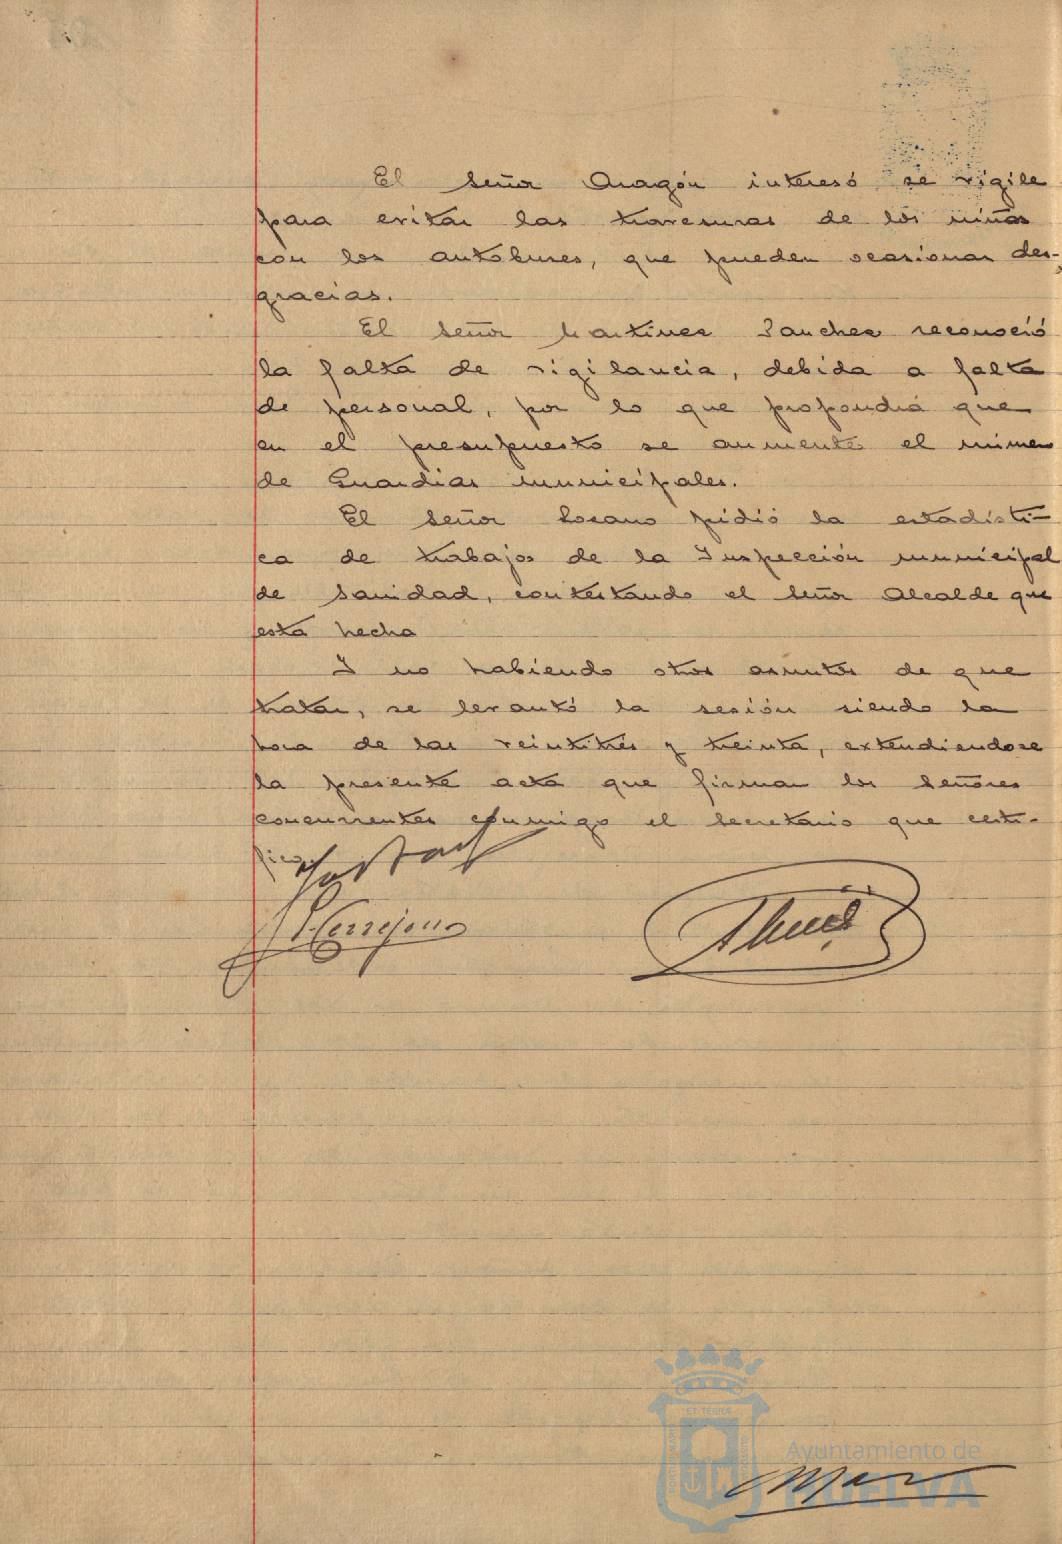 El Señor Aragón interesó se vigile
para evitar las travesuras de los niños
con los autobuses, que pueden ocasionar des-
gracias.
El Señor Martinez Sanchez reconoció
la falta de vigilancia, debida a falta
de personal, por lo que propondrá que
en el presupuesto se aumente el número
de Guardias municipales.
El Señor Lozano pidió la estadísti-
ca de trabajos de la Inspección municipal
de Sanidad, contestando el Señor Alcalde que
está hecha
Y no habiendo otros asuntos de que
tratar, se levantó la sesión siendo la
hora de las veintitrés y treinta, extendiendose
la presente acta que firman los Señores
concurrentes conmigo el Secretario que certi-
fico.
P. Cerrejano
Ayuntamiento de
HUELVA